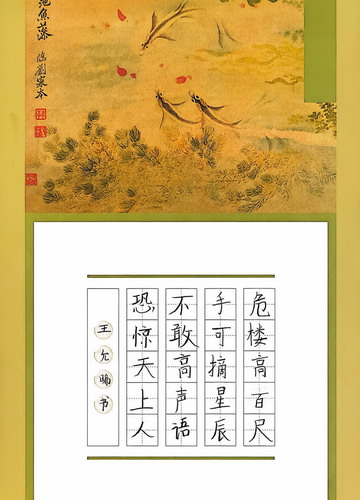 池魚藻
臨劉寀本
危楼高百尺
手可摘星辰
不敢高声语
恐惊天上人
王允书